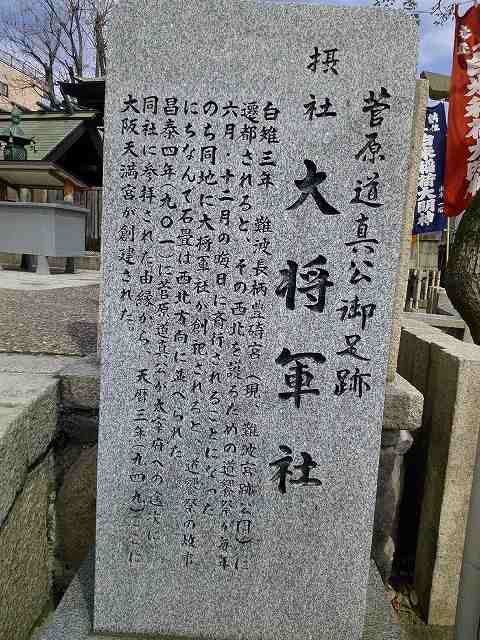 菅原道真公御足跡
摂社 大将軍社
白雉三年 難波長柄豊碕宮(現、難波宮跡公園)に
遷都されると、その西北を護るための道饗祭が毎年
六月・十二月の晦日に斎行されることになった
のち同地に大将軍社が創祀されると、道饗祭の故事
にちなんで石畳は西北方向に並べられた。
昌泰四年(九〇一)に菅原道真公が太宰府への途次に
同社に参拝された由縁から、天暦三年(九四九)ここに
大阪天満宮が創建された。